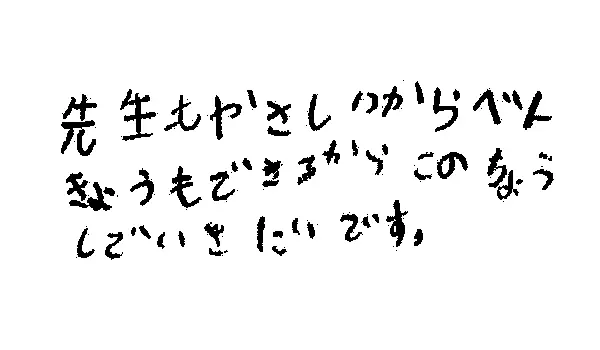 先生もやさしいからべん
きょうもできるからこのちょう
しでいきたいです。